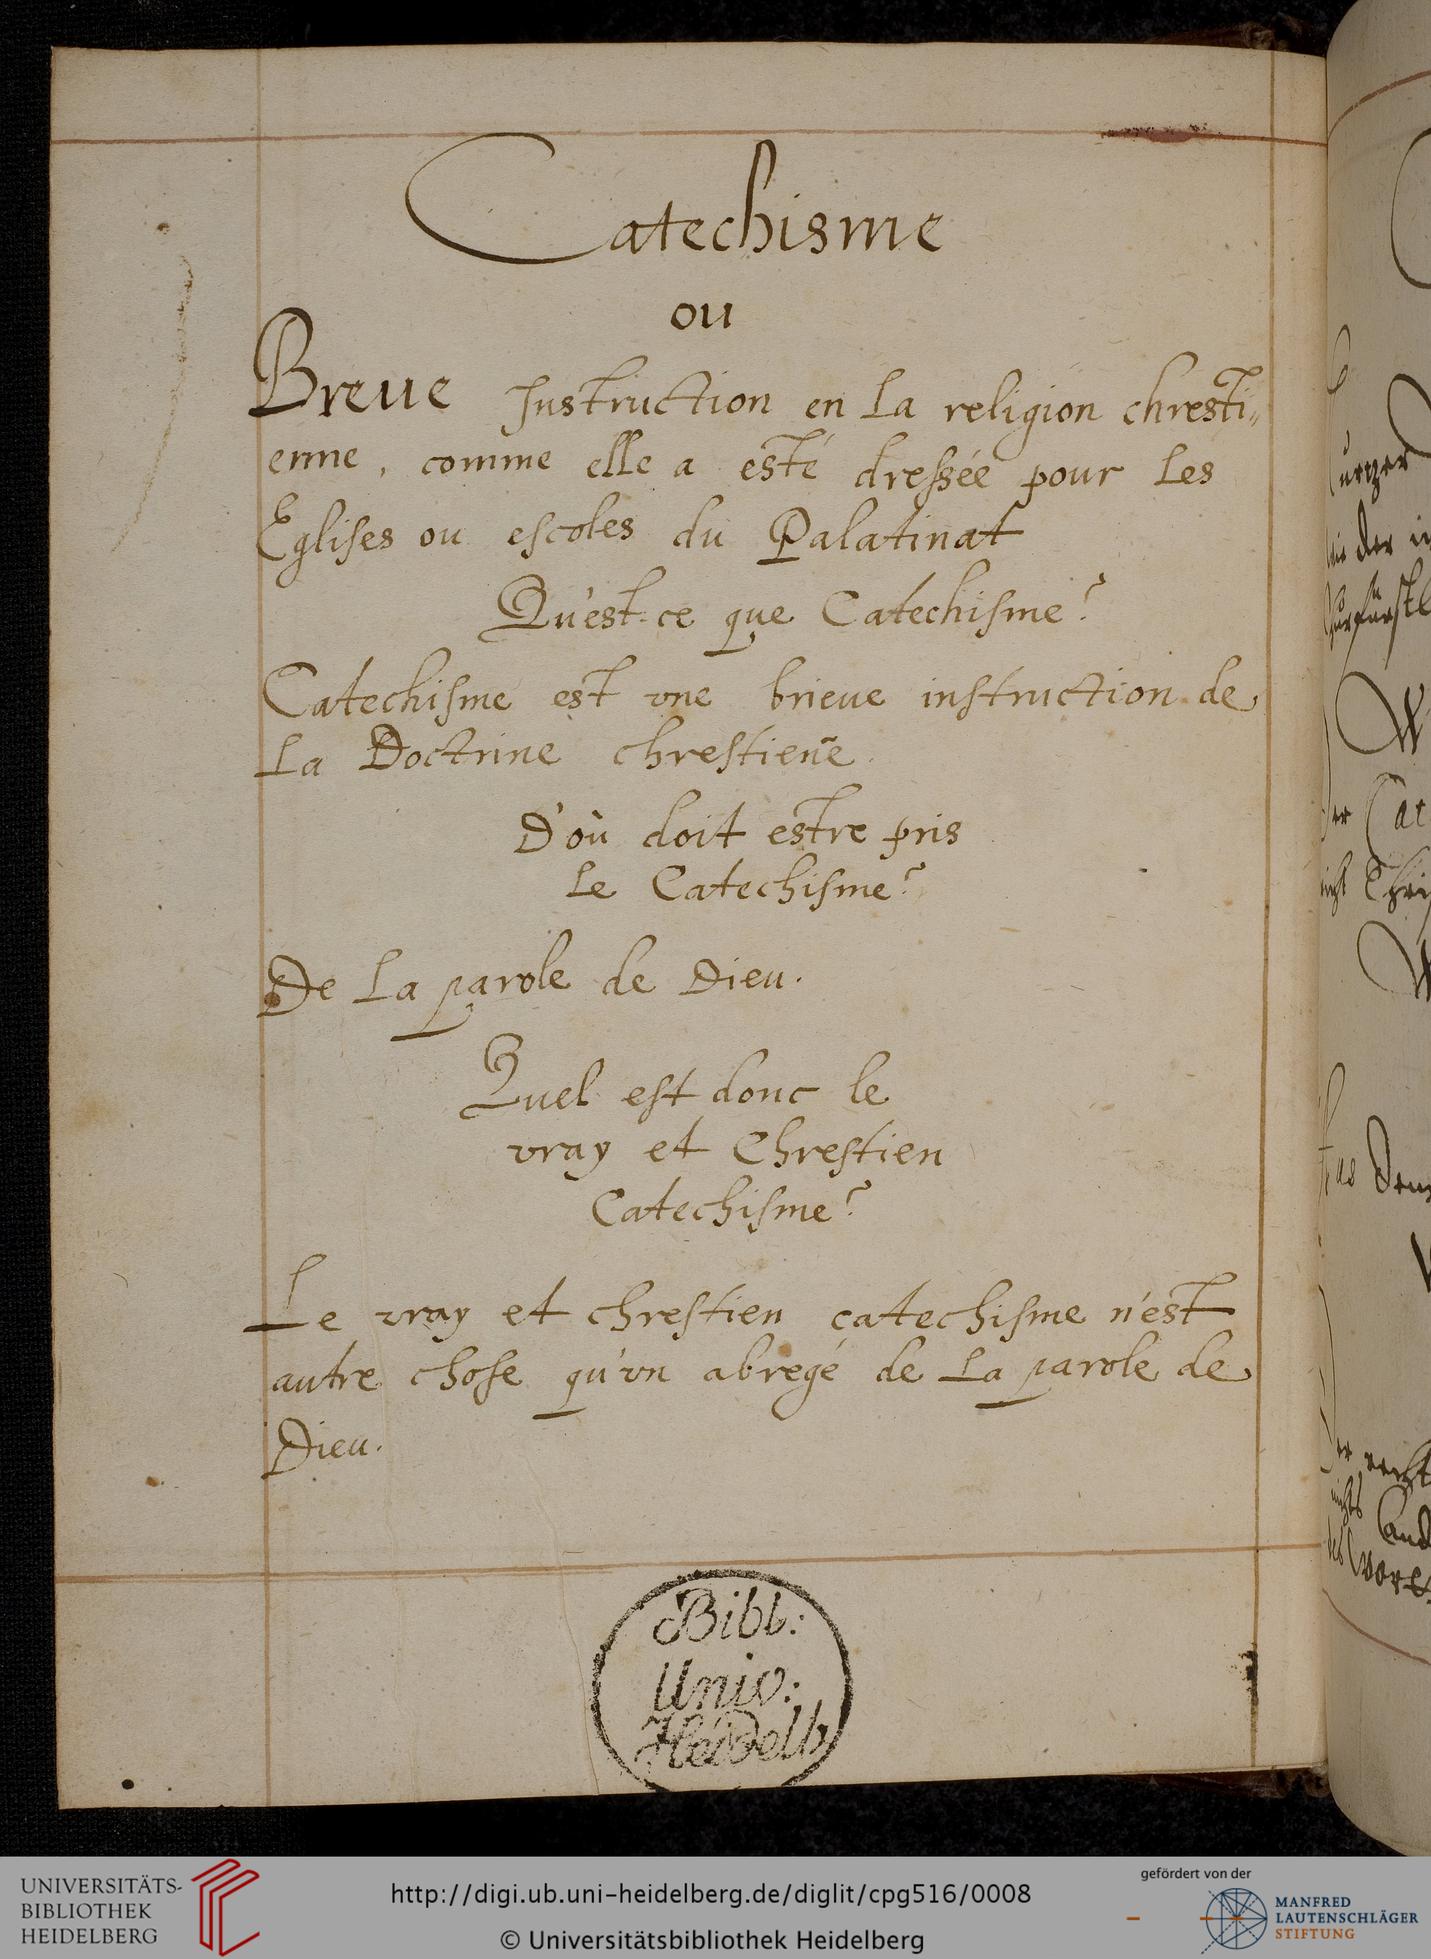 Catechisme
ou
Breue Instruction en la religion chresti„
enne, comme elle a esté dressée pour les
Eglises ou escoles du Palatinat
Qu'est-ce que Catechisme?
Catechisme est vne brieue instruction de
la Doctrine chrestiene̅.
D'où doit estre pris
le Catechisme?
De la parole de Dieu.
Quel est donc le
vray et Chrestien
Catechisme?
Le vray et chrestien catechisme n'est
autre chose qu'vn abregé de la parole de
Dieu.
Bibl:
Univ:
Heidelb
urtzer
der
W
er Cat
Chri
W
er recht
des Wort
UNIVERSITÄTS-
BIBLIOTHEK
HEIDELBERG
http://digi.ub.uni-heidelberg.de/diglit/cpg516/0008
© Universitätsbibliothek Heidelberg
gefördert von der
MANFRED
LAUTENSCHLÄGER
STIFTUNG